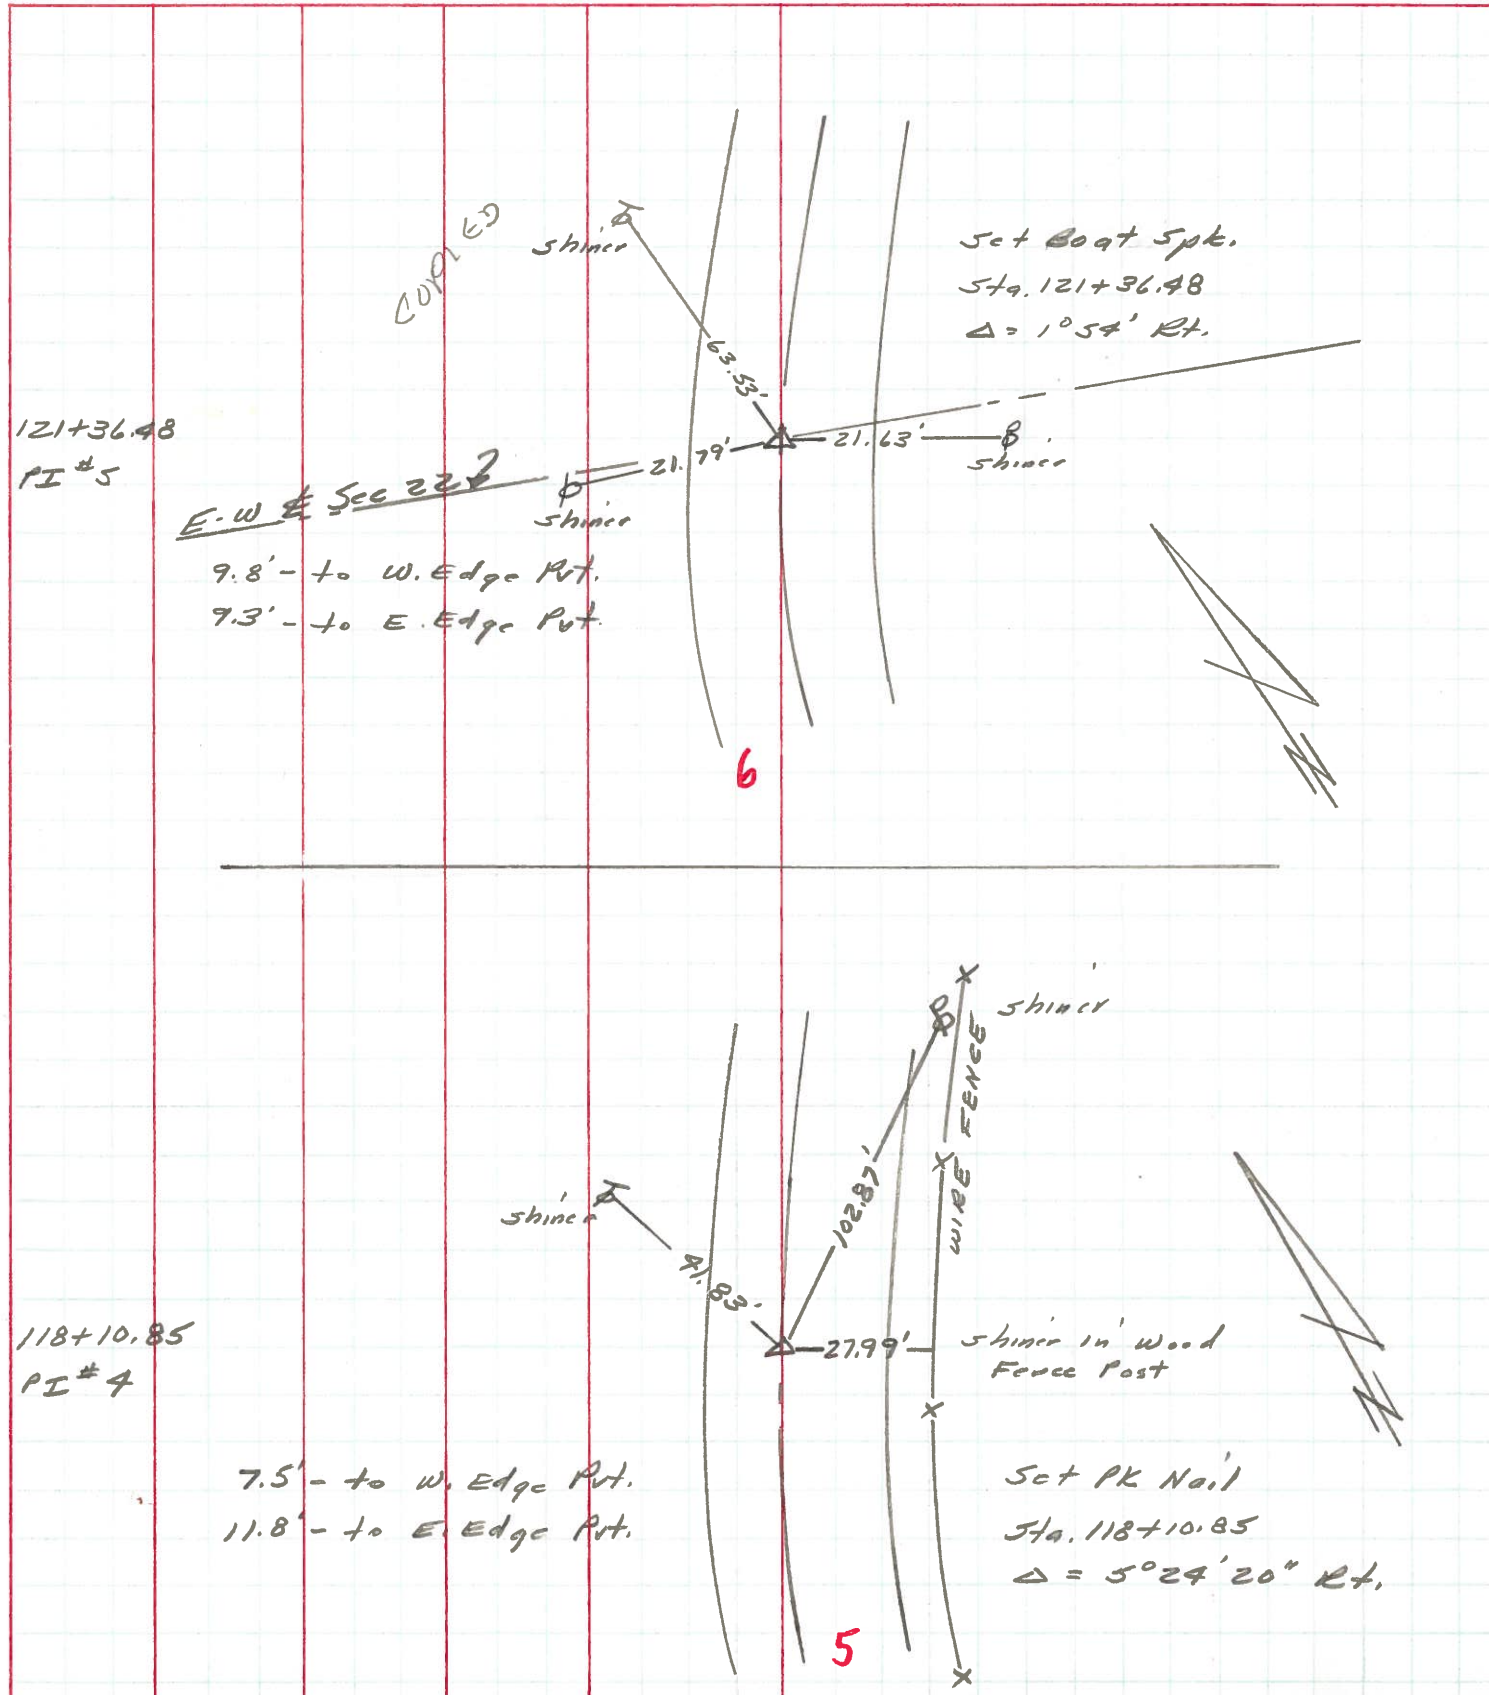 COPIED
shiner
Set Boat Spk.
Sta. 121+36.48
Δ = 1°54' Rt.
63.53'
121+36.48
PI #5
21.79'
21.63'
shiner
E-W ℄ Sec 22
shiner
9.8' - to W. Edge Pvt.
9.3' - to E. Edge Pvt.
N
6
shiner
WIRE FENCE
102.87'
shiner
41.83'
118+10.85
PI #4
27.99'
shiner in wood
Fence Post
N
7.5' - to W. Edge Pvt.
11.8' - to E. Edge Pvt.
Set PK Nail
Sta. 118+10.85
Δ = 5°24'20" Rt.
5